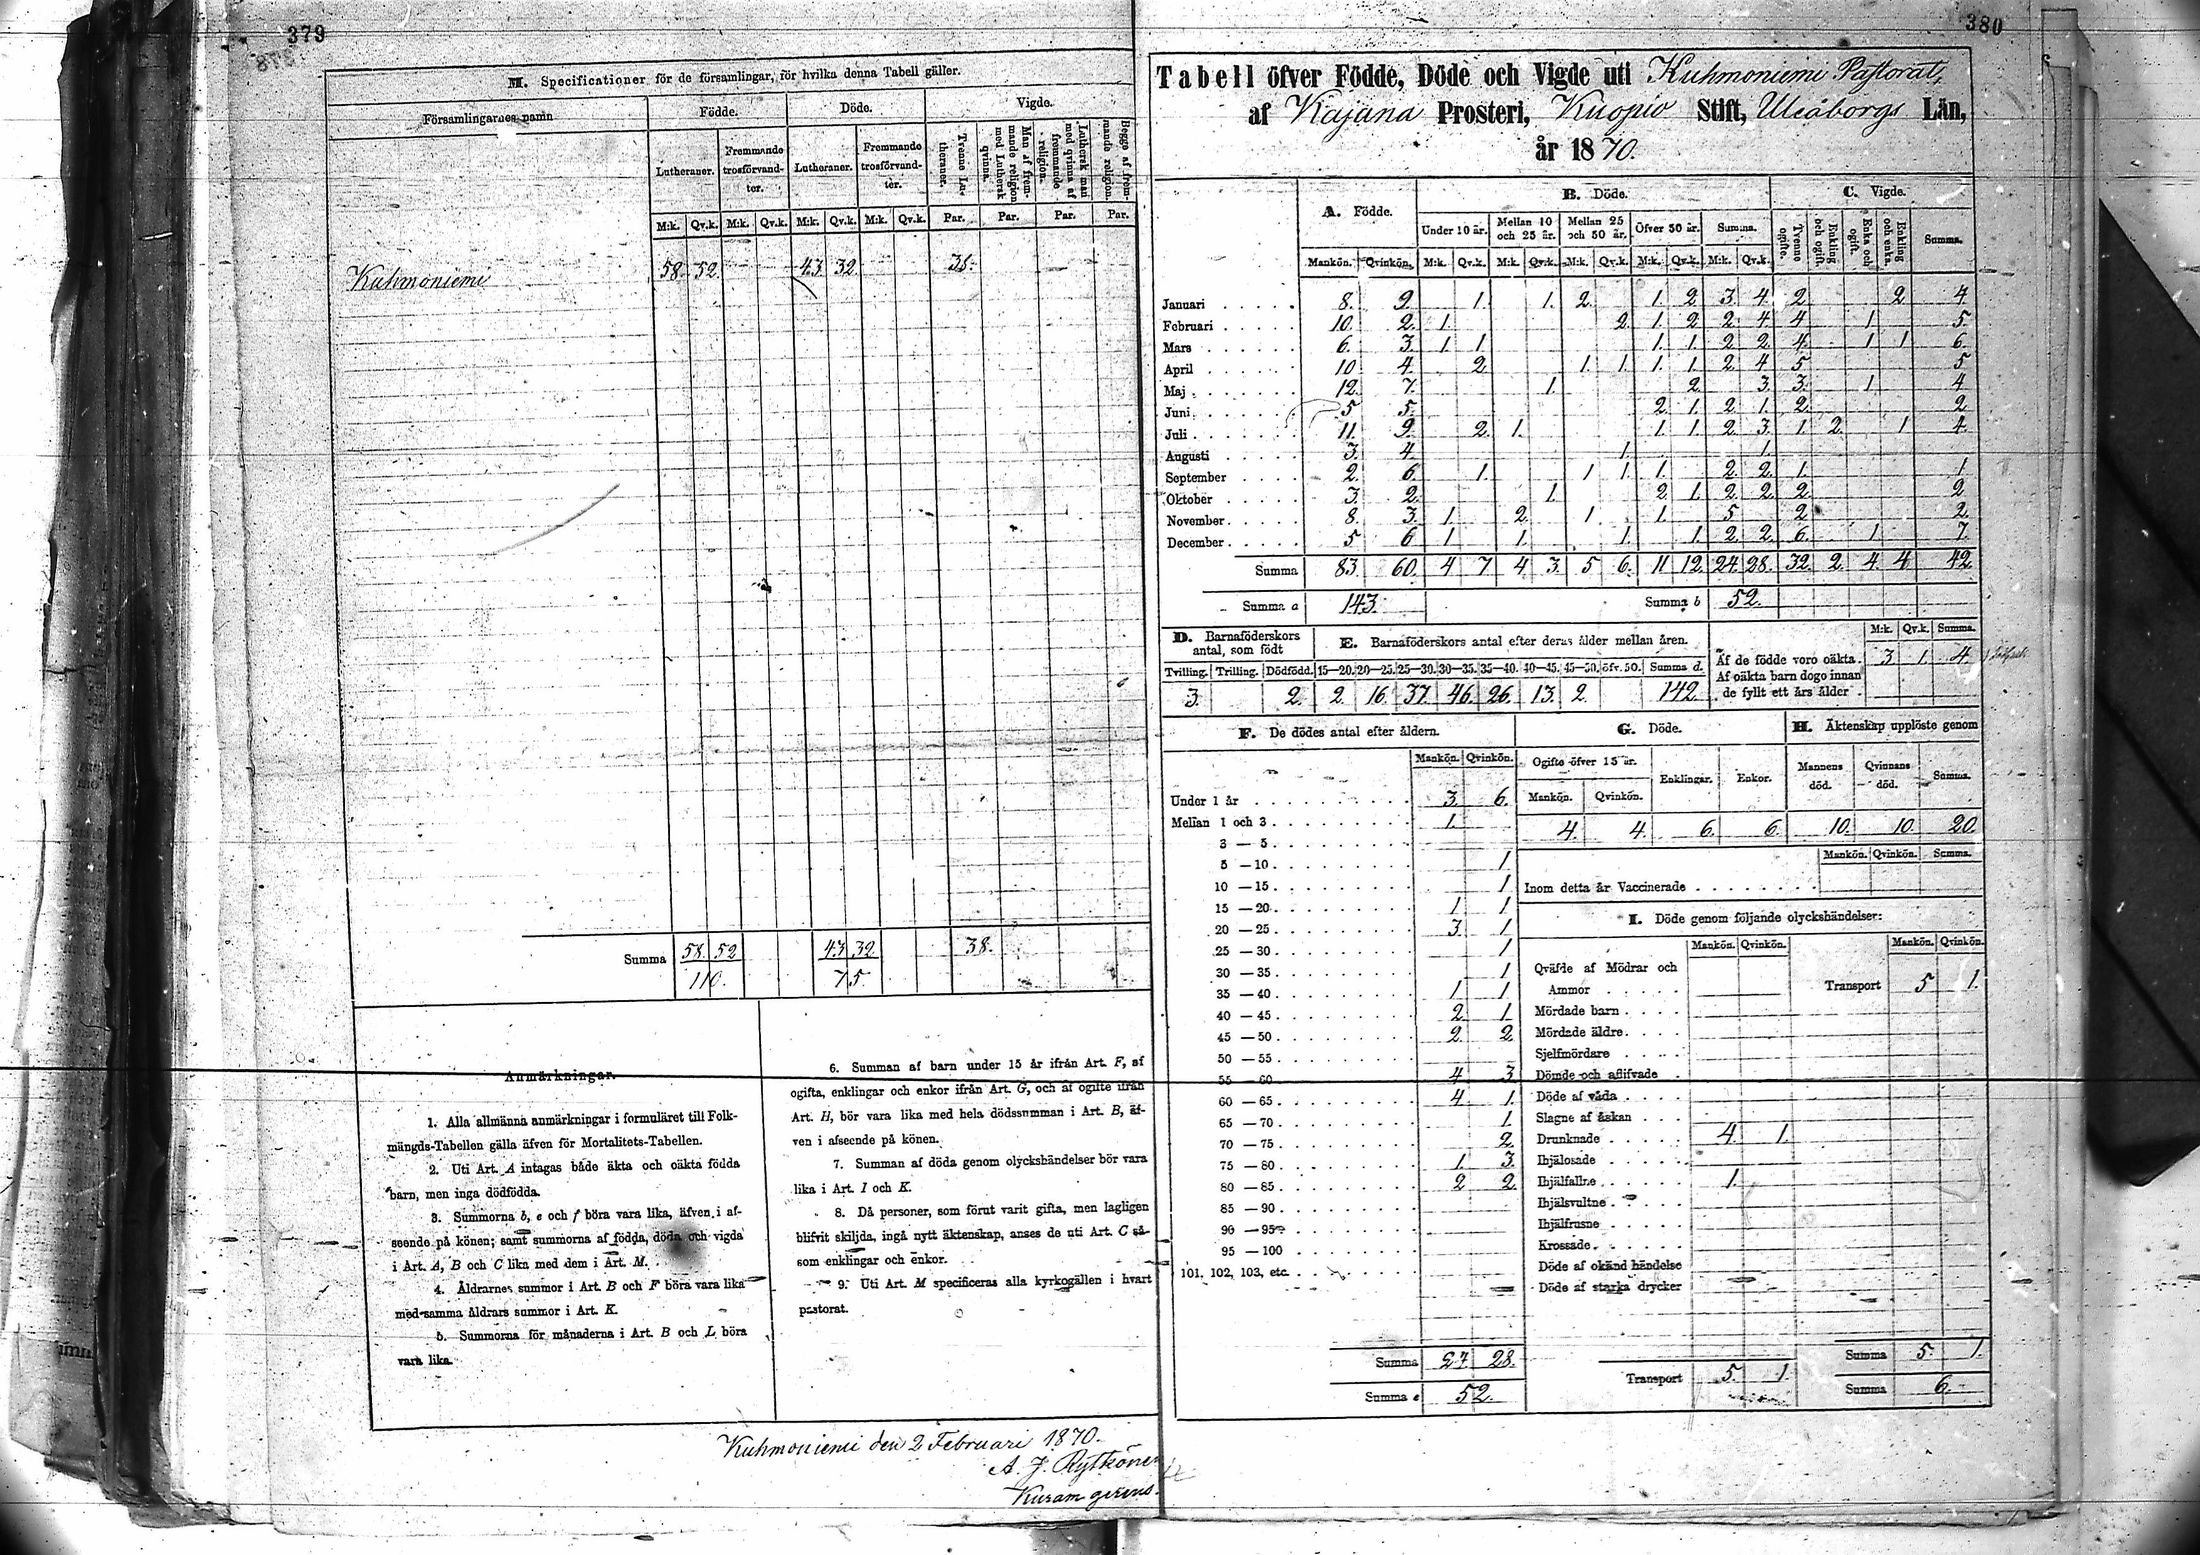 379
M. Specificationer för de församlingar, för hvilka denna Tabell gäller.
Församlingarnes namn
Födde. Döde. Vigde.
Lutheraner. Fremmande trosförvandter. Lutheraner. Fremmande trosförvandter. Tvenne Lutheraner. Man af fremmande religion med Luthersk qvinna. Luthersk man med qvinna af fremmande religion. Begge af fremmande religion.
M:k. Qv.k. M:k. Qv.k. M:k. Qv.k. M:k. Qv.k. Par. Par. Par. Par.
Kuhmoniemi 58. 52. 43 32 38.
Summa 58. 52 43 32 38.
110. 75.
Anmärkningar.
1. Alla allmänna anmärkningar i formuläret till Folk-
mängds-Tabellen gälla äfven för Mortalitets-Tabellen.
2. Uti Art. A intagas både äkta och oäkta födda
barn, men inga dödfödda.
3. Summorna b, e och f böra vara lika, äfven i af-
seende på könen; samt summorna af födda, döda och vigda
i Art. A, B och C lika med dem i Art. M.
4. Åldrarnes summor i Art. B och F böra vara lika
med samma åldrars summor i Art. K.
5. Summorna för månaderna i Art. B och L böra
vara lika.
6. Summan af barn under 15 år ifrån Art. F, af
ogifta, enklingar och enkor ifrån Art. G, och af ogifte ifrån
Art. H, bör vara lika med hela dödssumman i Art. B, äf-
ven i afseende på könen.
7. Summan af döda genom olyckshändelser bör vara
lika i Art. I och K.
8. Då personer, som förut varit gifta, men lagligen
blifvit skiljda, ingå nytt äktenskap, anses de uti Art. C så-
som enklingar och enkor.
9. Uti Art. M specificeras alla kyrkogällen i hvart
pastorat.
Kuhmoniemi den 2 Februari 1870.
A. J. Rytköne
Kuram gerens.
380
Tabell öfver Födde, Döde och Vigde uti Kuhmoniemi Pastorat,
af Kajana Prosteri, Kuopio Stift, Uleåborgs Län,
år 1870.
A. Födde. B. Döde. C. Vigde.
Under 10 år. Mellan 10 och 25 år. Mellan 25 och 50 år. Öfver 50 år. Summa. Tvenne ogifte. Enkling och ogift. Enka och ogift. Enkling och enka. Summa.
Mankön. Qvinkön. M:k. Qv.k. M:k. Qv.k. M:k. Qv.k. M:k. Qv.k. M:k. Qv.k.
Januari 8. 9. 1. 1. 2. 1. 2 3 4. 2 2 4.
Februari 10. 2. 1. 2. 1. 2 2 4 4 1 5.
Mars 6. 3. 1. 1. 1. 1. 2 2 4. 1 1 6.
April 10 4. 2. 1 1. 1. 1. 2 4 5 5
Maj 12. 7. 1. 2 3 3. 1 4
Juni 5 5. 2. 1. 2. 1. 2. 2
Juli 11. 9. 2. 1. 1. 1. 2 3. 1. 2. 1 4.
Augusti 3. 4. 1. 1.
September 2. 6. 1. 1 1. 1. 2. 2. 1. 1
Oktober 3. 2. 1. 2 1. 2. 2 2. 2
November 8. 3. 1. 2. 1. 1. 5. 2. 2.
December 5 6 1. 1. 1. 1. 2 2 6. 1. 7.
Summa 83. 60. 4 7 4 3. 5 6. 11 12. 24. 28. 32. 2. 4. 4 42
Summa a 143. Summa b 52.
D. Barnaföderskors antal, som födt
E. Barnaföderskors antal efter deras ålder mellan åren.
M:k. Qv.k. Summa.
Tvilling. Trilling. Dödfödd. 15—20. 20—25. 25—30. 30—35. 35—40. 40—45. 45—50. öfv. 50. Summa d.
3. 2. 2. 16. 37. 46. 26. 13. 2. 142.
Af de födde voro oäkta. 3 1. 4.
Af oäkta barn dogo innan
de fyllt ett års ålder
F. De dödes antal efter åldern.
Mankön. Qvinkön.
Under 1 år 3. 6.
Mellan 1 och 3 1.
3 — 5
5 — 10 1
10 — 15 1
15 — 20 1 1
20 — 25 3. 1
25 — 30 1
30 — 35 1
35 — 40 1. 1
40 — 45 2. 1
45 — 50 2. 2.
50 — 55
55 — 60 4 3
60 — 65 4. 1.
65 — 70 1.
70 — 75 2.
75 — 80 1. 3.
80 — 85 2 2.
85 — 90
90 — 95
95 — 100
101, 102, 103, etc.
Summa 24 28.
Summa e 52.
G. Döde.
Ogifte öfver 15 år. Enklingar. Enkor.
Mankön. Qvinkön.
4. 4. 6. 6.
H. Äktenskap upplöste genom
Mannens död. Qvinnans död. Summa.
10. 10. 20.
Mankön. Qvinkön. Summa.
Inom detta år Vaccinerade
I. Döde genom följande olyckshändelser:
Mankön. Qvinkön. Mankön. Qvinkön.
Qväfde af Mödrar och
Ammor
Transport 5 1.
Mördade barn
Mördade äldre
Sjelfmördare
Dömde och aflifvade
Döde af våda
Slagne af åskan
Drunknade 4. 1.
Ihjälosade
Ihjälfallne 1.
Ihjälsvultne
Ihjälfrusne
Krossade
Döde af okänd händelse
Döde af starka drycker
Transport 5. 1.
Summa 5. 1.
Summa 6.